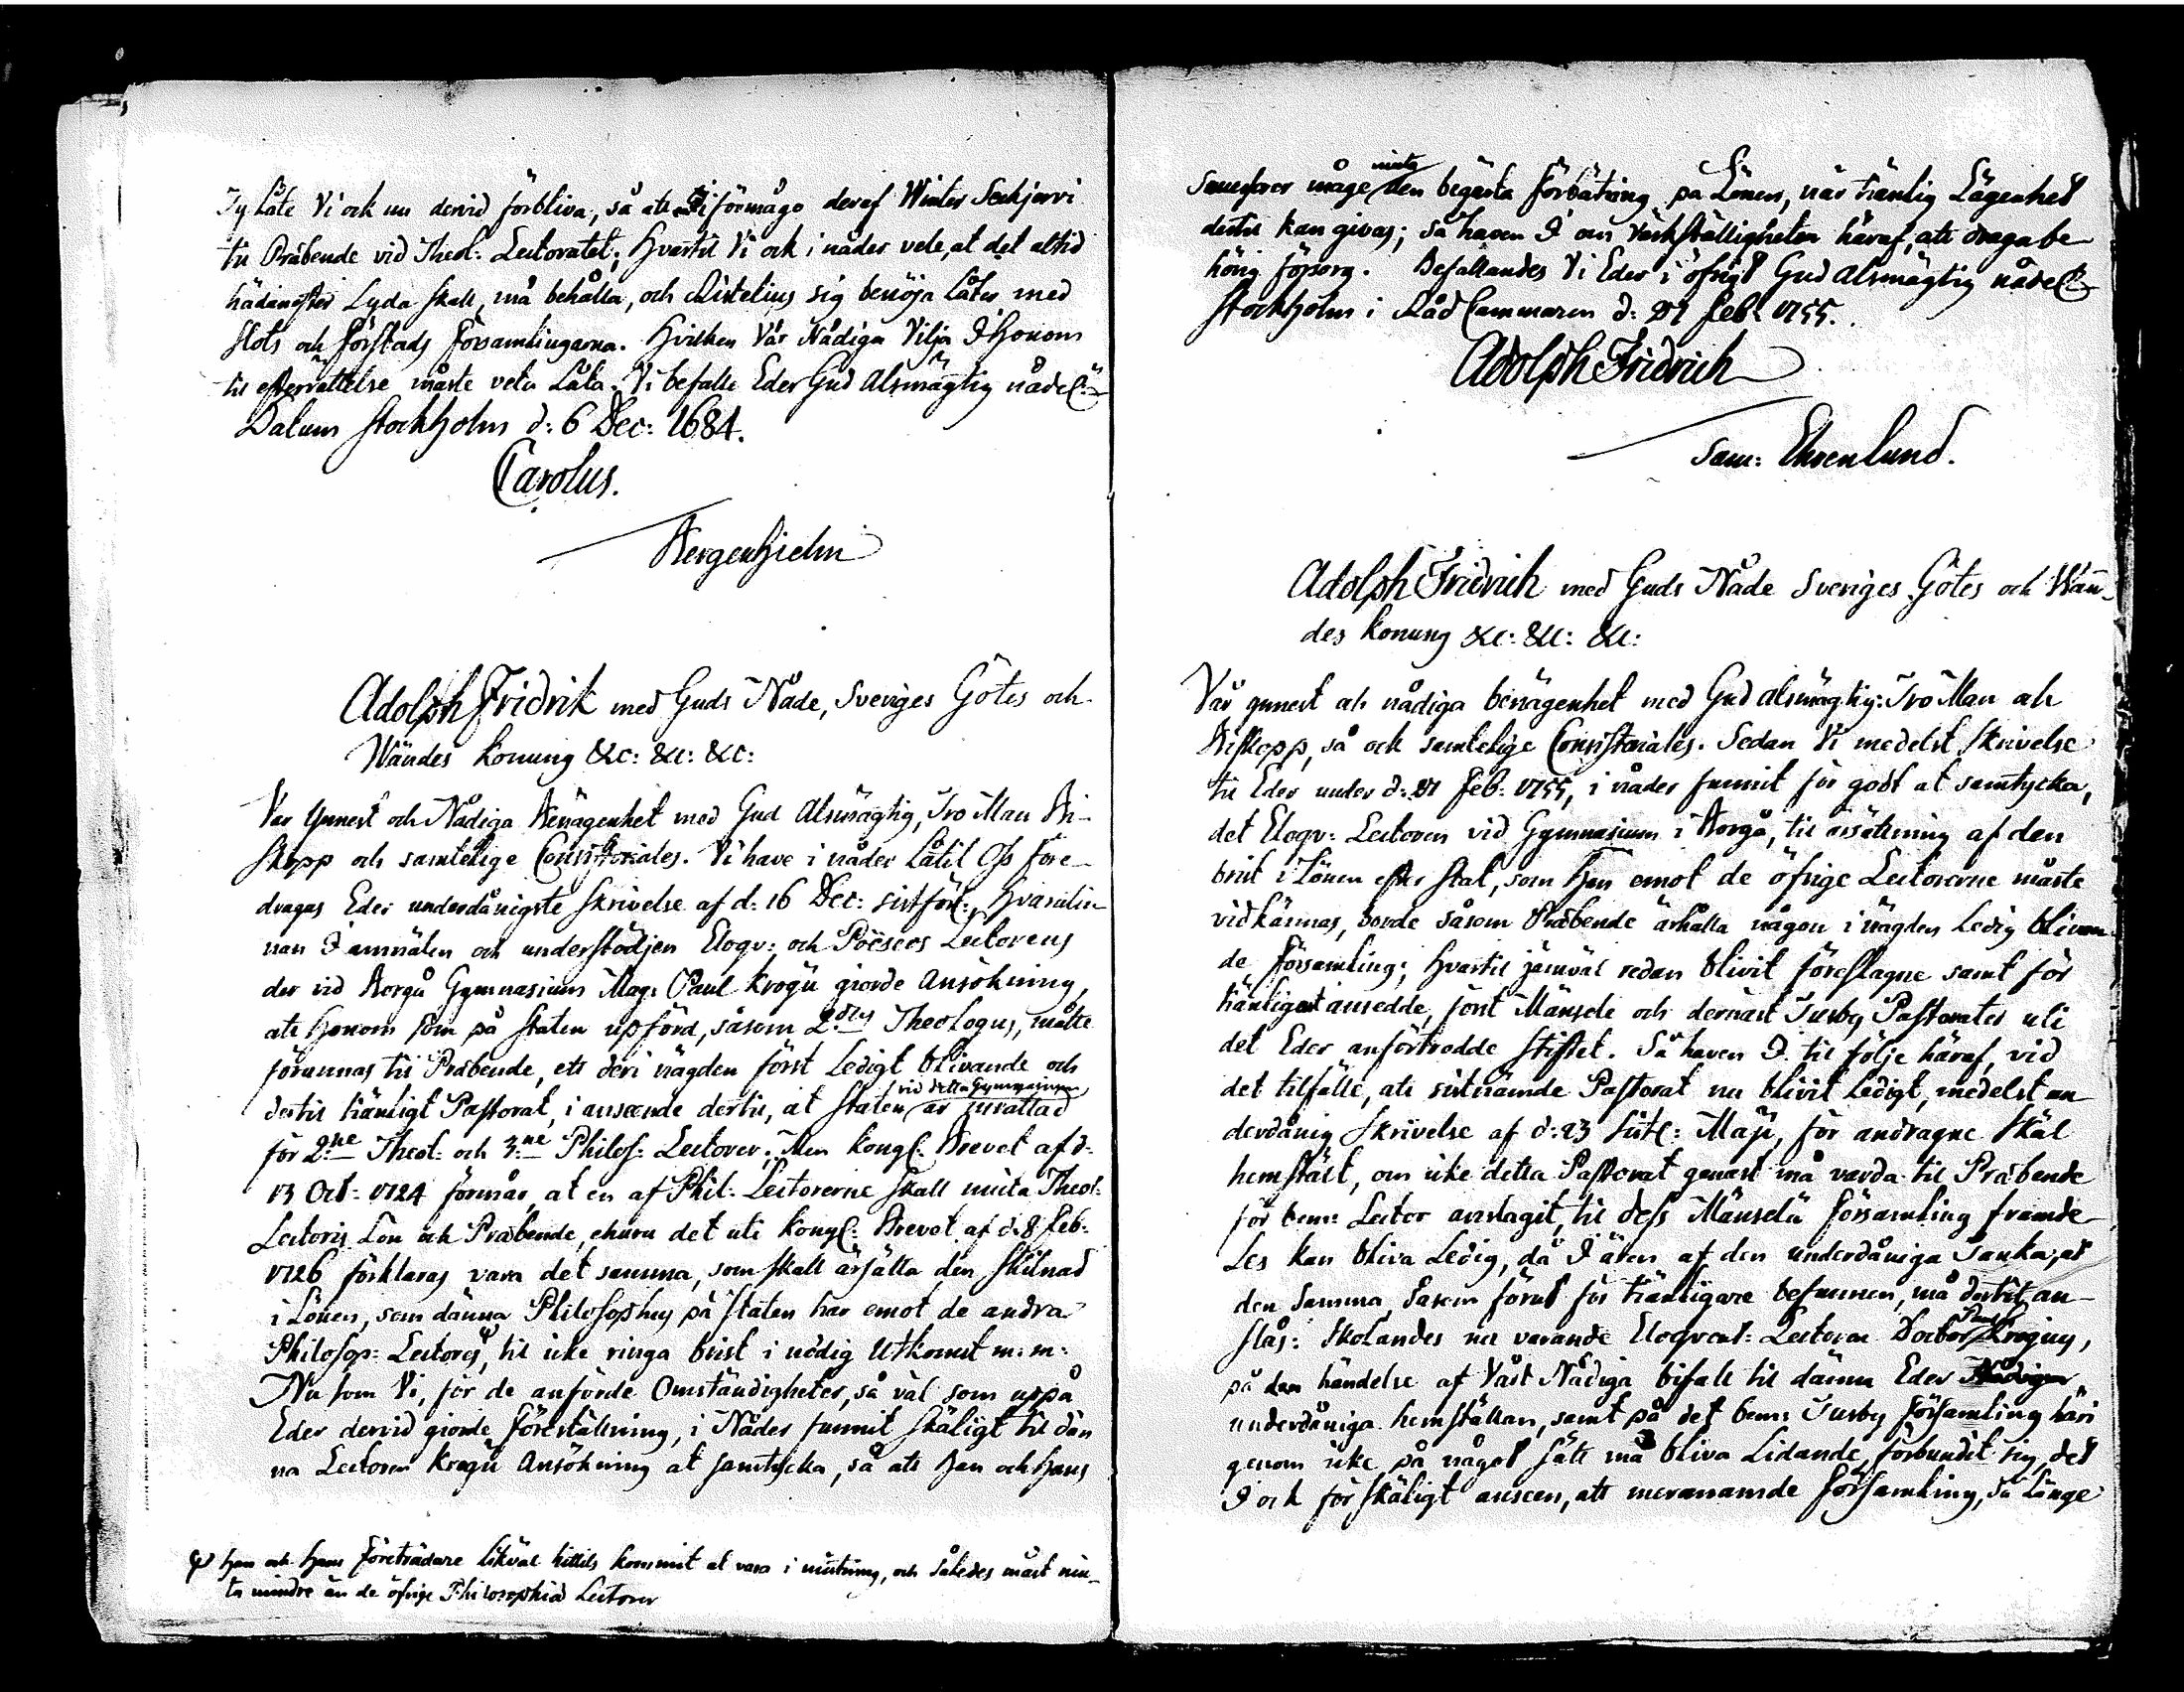 Ty låte Vi ock nu dervid förbliva, så att i förmågo deraf Winter Seckjervi
til Præbende vid Theol: Lectoratet; Hvartil Vi ock i nåder vele, at det altid
hädanefter Lyda skall, må behålla, och Aistelius sig benöja låter med
Slots och Förstads Församlingarna. Hvilken Vår Nådiga Vilja I Honom
til efterrättelse måste veta Låta. Vi befalle Eder Gud Alsmägtig nådel:n
Datum Stockholm d: 6 Dec: 1684.
Carolus.
Bergenhjelm
Adolph Fridrik med Guds Nåde, Sveriges Götes och
Wändes Konung &c: &c: &c:
Vår Ynnest och Nådiga Benägenhet med Gud Alsmägtig, Tro Man Bi-
skopp och samtelige Consistoriales. Vi have i nåder Låtit Oss före-
dragas Eder underdånigste Skrivelse af d: 16 Dec: sistförl:, hvarulin-
nan I anmälen och understödjen Eloqv: och Poëseos Lectorens
der vid Borgå Gymnasium Mag: Paul Krogii giorde Ansökning,
att Honom som på Staten upförd, såsom 2:dus Theologus, måtte
förunnas til Præbende, ett der i nägden först Ledigt blivande och
dertil tiänligt Pastorat, i anseende dertil, at Staten vid detta Gymnasium är inrättad
för 2:ne Theol: och 3:ne Philos: Lectorer; Men Kongl: Brevet af d:
13 Oct: 1724 förmår, at en af Phil: Lectorerne Skall niuta Theol:
Lectoris Lön och Præbende, ehuru det uti Kongl: Brevet af d: 8 Feb:
1726 förklaras vara det samma, som skall ärsätta den Skilnad
i Lönen, som dänna Philosophus på Staten har emot de andra
Philosop: Lectores, ψ til icke ringa brist i nödig Utkomst m: m:
Nu som Vi, för de anförde Omständigheter, så väl som uppå
Eder dervid giorde föreställning, i Nåder funnit skäligt til dän
na Lectoren Krogii Ansökning at samtycka, så att Han och Hans
ψ Han och Hans Företrädare likväl hittils kommit at vara i mistning, och således mäst niu-
ta mindre än de öfrige Philosophiæ Lectorer
Successorer måge niuta den begärta förbätring på Lönen, när tiänlig Lägenhet
dertil kan givas; Så haven I om Värkställigheten häraf, att draga be-
hörig försorg. Befallandes Vi Eder i öfrigt Gud Alsmägtig nådel:
Stockholm i Råd Cammaren d: 27 Feb: 1755.
Adolph Fridrich
Sam: Ehrenlund.
Adolph Fridrich med Guds Nåde Sveriges Götes och Wän-
des Konung &c: &c: &c:
Vår ynnest och nådiga benägenhet med Gud alsmägtig: Tro Man och
Biskopp, så ock samtelige Consistoriales. Sedan Vi medelst Skrivelse
til Eder under d: 27 Feb: 1755, i nåder funnit för godt at samtycka,
det Eloqv: Lectoren vid Gymnasium i Borgå, til ärsättning af den
brist i Lönen efter Stat, som Han emot de öfrige Lectorerne måste
vidkännas, borde såsom Præbende ärhålla någon i nägden Ledig blivan-
de Församling; Hvartil jämväl redan blivit föreslagne samt för
tiänligast ansedde, först Mänsele och dernäst Tusby Pastorater uti
det Eder anförtrodde Stiftet. Så haven I til följe häraf, vid
det tilfälle, att sistnämde Pastorat nu blivit Ledigt, medelst un
derdånig Skrivelse af d: 23 Sistl: Maji, för andragne Skäl
hemstält, om icke detta Pastorat genast må varda til Præbende
för bem: Lector anslagit, til dess Mänselä Församling framde-
Les kan bliva Ledig, då I ären af den underdåniga Tanka, at
den samma, såsom förut för tiänligare befunnen, må dertil an-
slås: Skolandes nu varande Eloqvent: Lectoren Doctor Paul Krogius,
på händelse af Vårt Nådiga bifall til dänna Eder
underdåniga hemställan, samt på det bem: Tusby Församling häri
genom icke på något sätt må bliva Lidande, förbundit sig, det
I ock för skäligt ansen, att merannämde Församling, så Länge